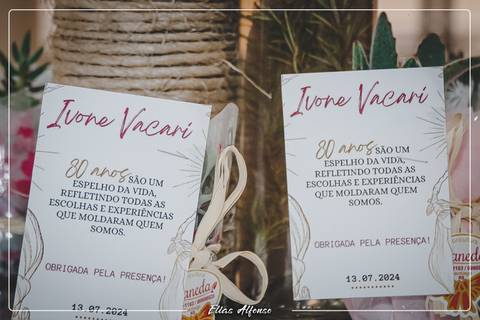 Ivone Vacari
80 anos SÃO UM
ESPELHO DA VIDA,
REFLETINDO TODAS AS
ESCOLHAS E EXPERIÊNCIAS
QUE MOLDARAM QUEM
SOMOS.
OBRIGADA PELA PRESENÇA!
13.07.2024
Ivone Vacari
80 anos SÃO UM
ESPELHO DA VIDA,
REFLETINDO TODAS AS
ESCOLHAS E EXPERIÊNCIAS
QUE MOLDARAM QUEM
SOMOS.
OBRIGADA PELA PRESENÇA!
13.07.2024
Elias Alfonso